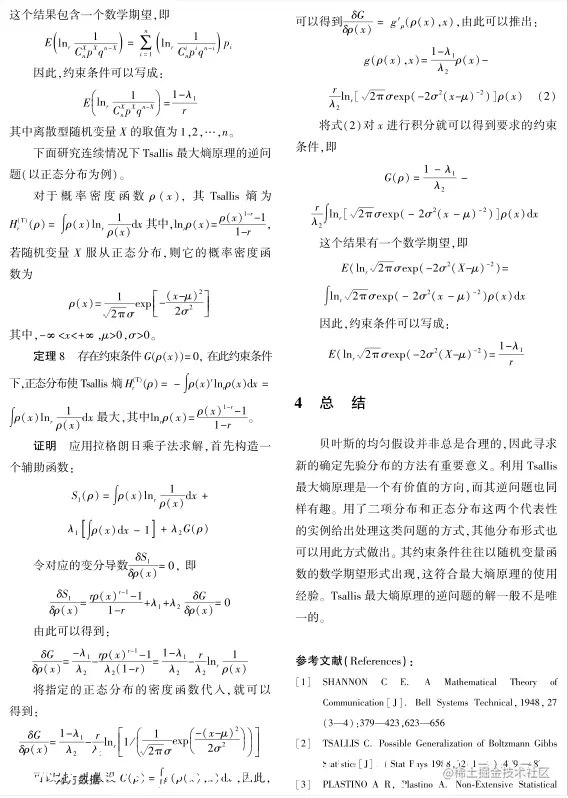 这个结果包含一个数学期望,即
E(ln_r 1/(C_n^X p^X q^{n-X})) = ∑_{i=1}^{n} (ln_r 1/(C_n^i p^i q^{n-i})) p_i
因此,约束条件可以写成:
E(ln_r 1/(C_n^X p^X q^{n-X})) = (1-λ_1)/r
其中离散型随机变量 X 的取值为 1,2,…,n。
下面研究连续情况下 Tsallis 最大熵原理的逆问
题(以正态分布为例)。
对于概率密度函数 ρ(x), 其 Tsallis 熵为
H_r^{(T)}(ρ) = ∫ρ(x)ln_r 1/ρ(x) dx 其中,ln_rρ(x)=(ρ(x)^{1-r}-1)/(1-r),
若随机变量 X 服从正态分布,则它的概率密度函
数为
ρ(x)= 1/(√2π σ) exp[-(x-μ)^2/2σ^2]
其中,-∞<x<+∞,μ>0,σ>0。
定理 8 存在约束条件 G(ρ(x))=0, 在此约束条件
下,正态分布使 Tsallis 熵 H_r^{(T)}(ρ) = -∫ρ(x)^r ln_rρ(x)dx =
∫ρ(x)ln_r 1/ρ(x) dx 最大,其中ln_rρ(x)=(ρ(x)^{1-r}-1)/(1-r)。
证明 应用拉格朗日乘子法求解,首先构造一
个辅助函数:
S_1(ρ) = ∫ρ(x)ln_r 1/ρ(x) dx +
λ_1[∫ρ(x)dx - 1] + λ_2G(ρ)
令对应的变分导数 δS_1/δρ(x) = 0, 即
δS_1/δρ(x) = (rρ(x)^{r-1}-1)/(1-r)+λ_1+λ_2 δG/δρ(x) = 0
由此可以得到:
δG/δρ(x) = -λ_1/λ_2 - (rρ(x)^{r-1}-1)/(λ_2(1-r)) = (1-λ_1)/λ_2 - r/λ_2 ln_r 1/ρ(x)
将指定的正态分布的密度函数代入,就可以
得到:
δG/δρ(x) = (1-λ_1)/λ_2 - r/λ ln_r[1/(1/(√2π σ) exp(-(x-μ)^2/2σ^2))]
G(ρ)=∫ (ρ(x),x)dx,因此,
可以得到 δG/δρ(x) = g′_ρ(ρ(x),x),由此可以推出:
g(ρ(x),x)= (1-λ_1)/λ_2 ρ(x)-
r/λ_2 ln_r[√2π σexp(-2σ^2(x-μ)^{-2})]ρ(x) (2)
将式(2)对 x 进行积分就可以得到要求的约束
条件,即
G(ρ) = (1 - λ_1)/λ_2 -
r/λ_2 ∫ln_r[√2π σexp(- 2σ^2(x - μ)^{-2})]ρ(x)dx
这个结果有一个数学期望,即
E(ln_r √2π σexp(-2σ^2(X-μ)^{-2})=
∫ln_r √2π σexp(- 2σ^2(x - μ)^{-2})ρ(x)dx
因此,约束条件可以写成:
E(ln_r √2π σexp(-2σ^2(X-μ)^{-2})= (1-λ_1)/r
4 总 结
贝叶斯的均匀假设并非总是合理的,因此寻求
新的确定先验分布的方法有重要意义。利用 Tsallis
最大熵原理是一个有价值的方向,而其逆问题也同
样有趣。用了二项分布和正态分布这两个代表性
的实例给出处理这类问题的方式,其他分布形式也
可以用此方式做出。其约束条件往往以随机变量函
数的数学期望形式出现,这符合最大熵原理的使用
经验。Tsallis 最大熵原理的逆问题的解一般不是唯
一的。
参考文献(References):
[1] SHANNON C E. A Mathematical Theory of
Communication [J]. Bell Systems Technical, 1948, 27
(3—4):379—423,623—656
[2] TSALLIS C. Possible Generalization of Boltzmann Gibbs
Statistics[J]
[3] PLASTINO A R, Plastino A. Non-Extensive Statistical
@稀土掘金技术社区